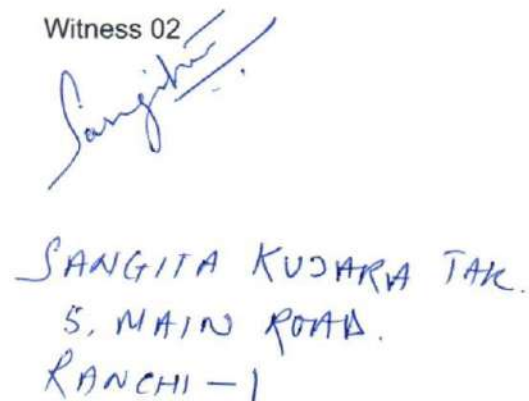 Witness 02
Sangita
SANGITA KUJARA TAK.
5, MAIN ROAD.
RANCHI - 1